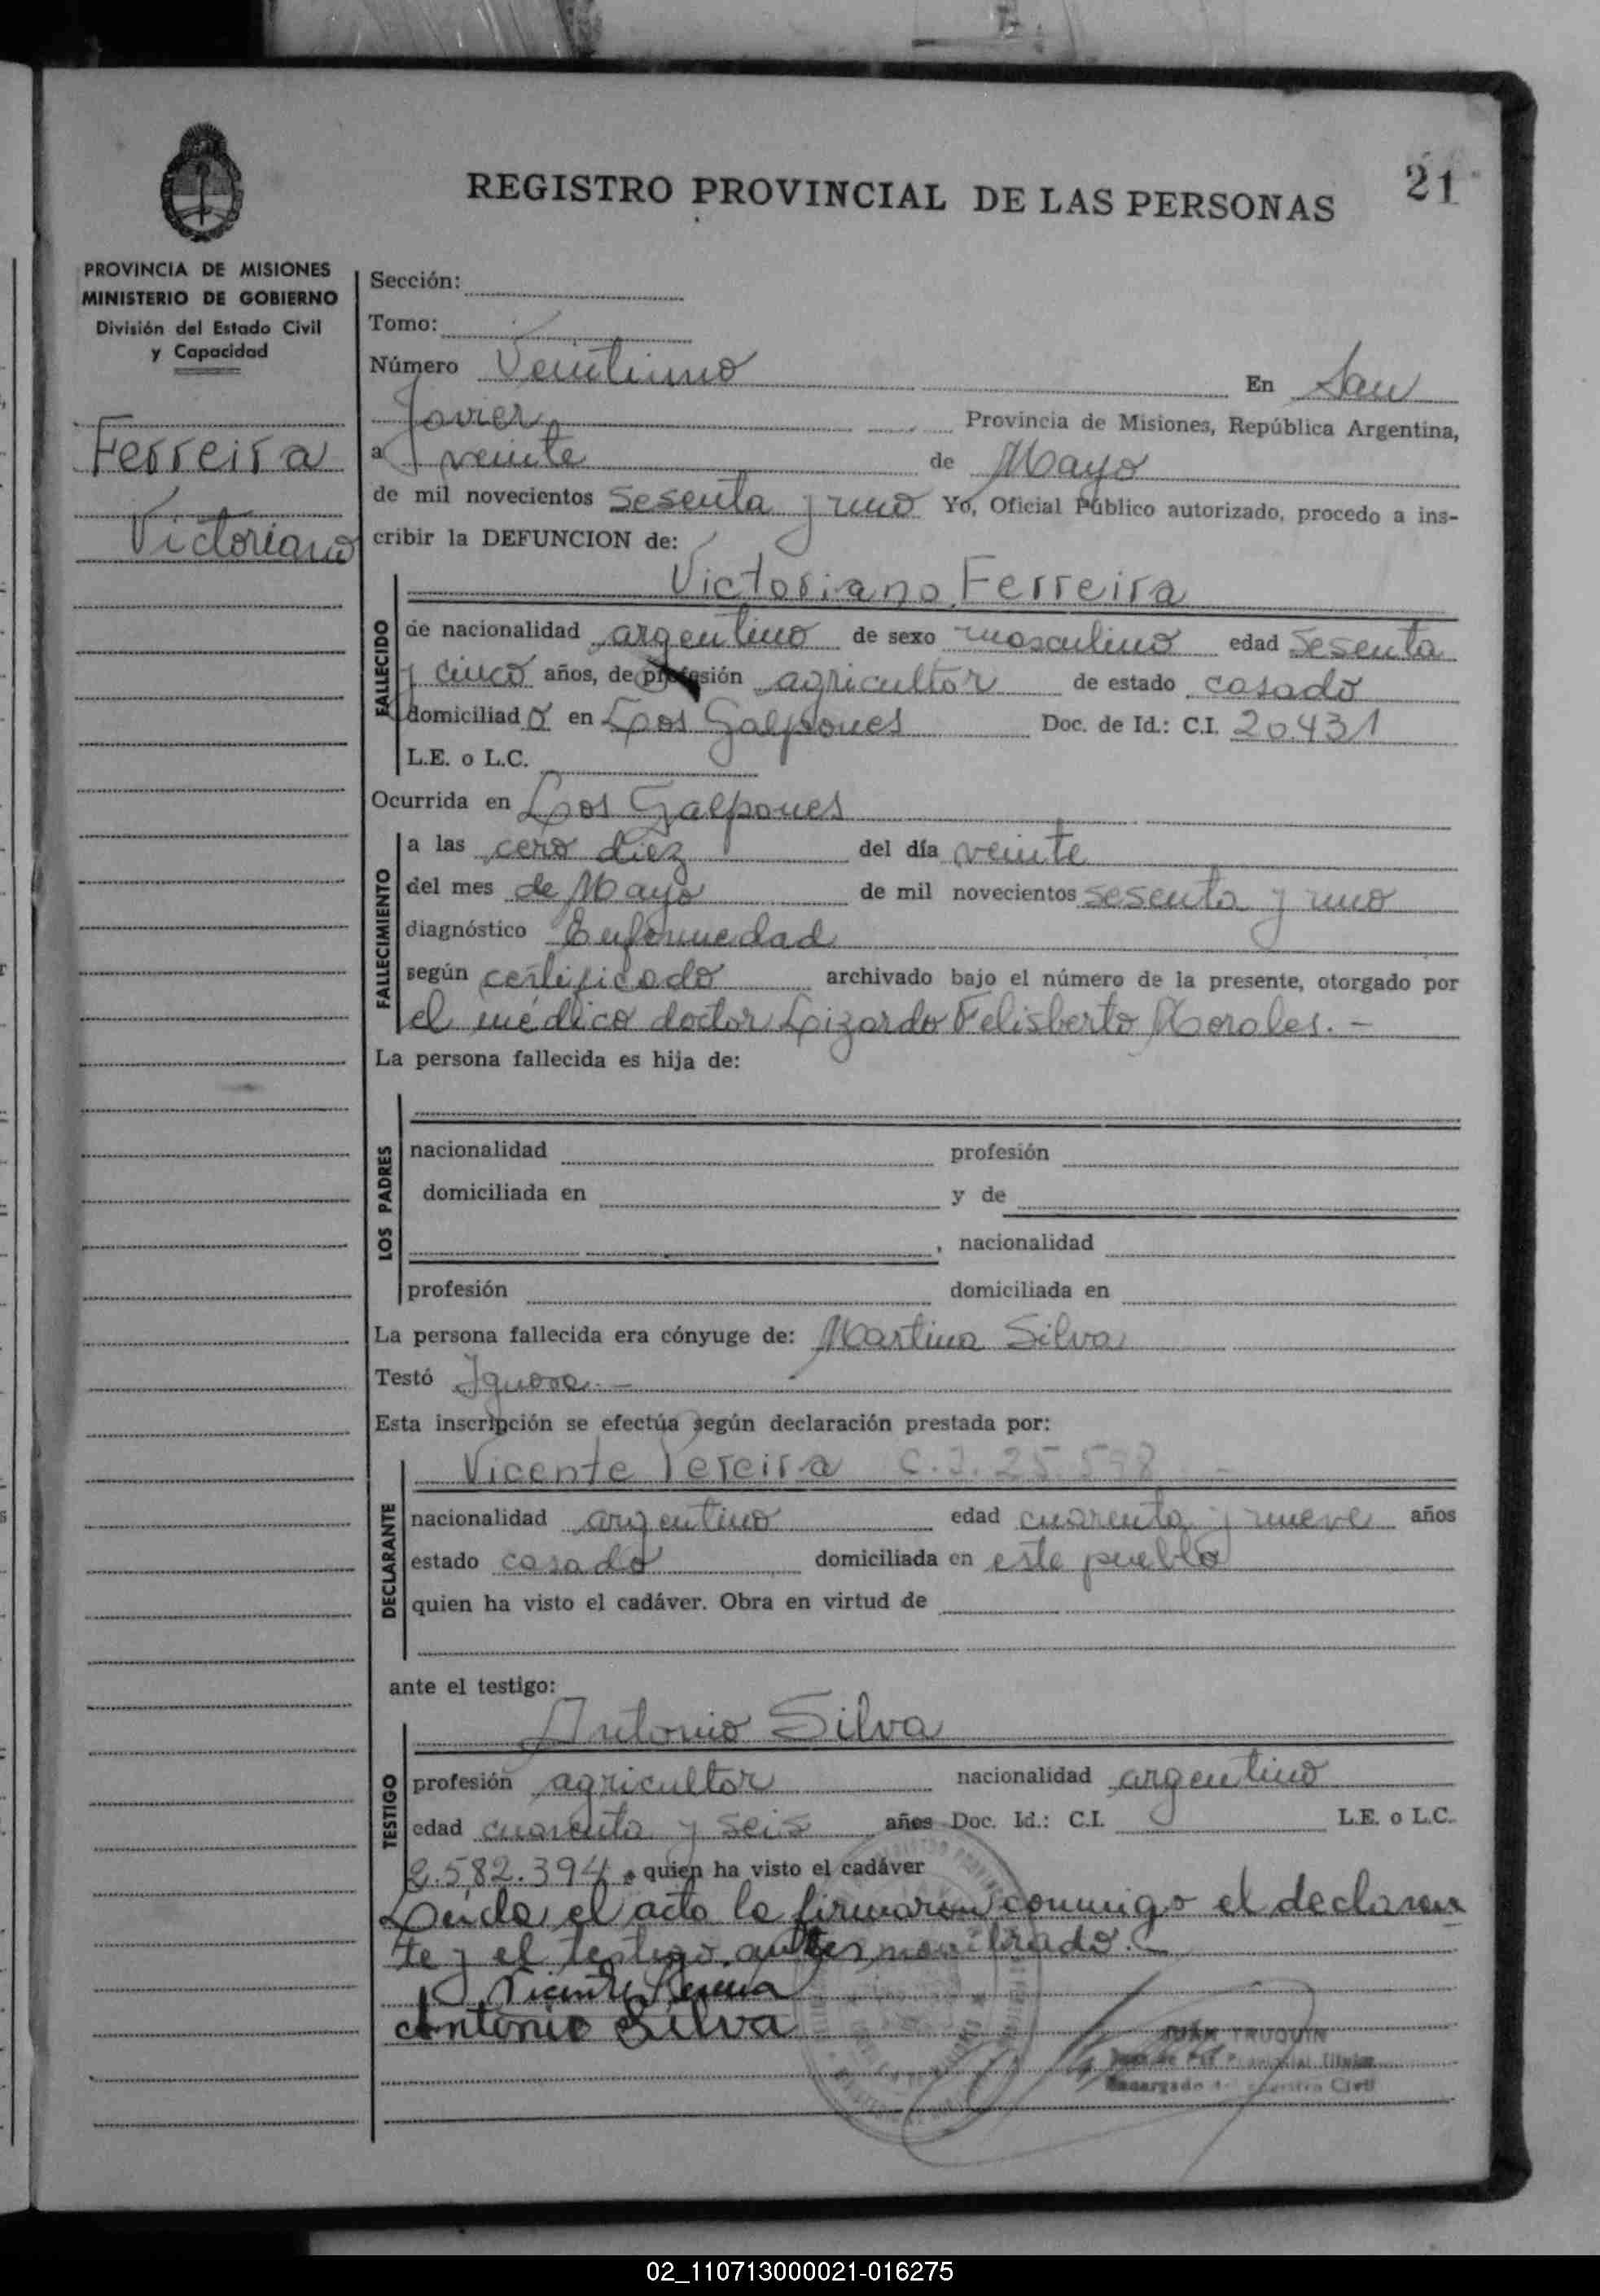 21
REGISTRO PROVINCIAL DE LAS PERSONAS
PROVINCIA DE MISIONES
MINISTERIO DE GOBIERNO
División del Estado Civil
y Capacidad
Ferreira
Victoriano
Sección:
Tomo:
Número Veintiuno En San
Javier Provincia de Misiones, República Argentina,
a veinte de Mayo
de mil novecientos sesenta y uno Yo, Oficial Público autorizado, procedo a ins-
cribir la DEFUNCION de:
Victoriano Ferreira
FALLECIDO
de nacionalidad argentino de sexo masculino edad sesenta
y cinco años, de profesión agricultor de estado casado
domiciliado en Los Galpones Doc. de Id.: C.I. 20.431
L.E. o L.C.
Ocurrida en Los Galpones
FALLECIMIENTO
a las cero diez del día veinte
del mes de Mayo de mil novecientos sesenta y uno
diagnóstico Enfermedad
según certificado archivado bajo el número de la presente, otorgado por
el médico doctor Lizardo Felisberto Morales. -
La persona fallecida es hija de:
LOS PADRES
nacionalidad profesión
domiciliada en y de
, nacionalidad
profesión domiciliada en
La persona fallecida era cónyuge de: Martina Silva
Testó Ignora. -
Esta inscripción se efectúa según declaración prestada por:
DECLARANTE
Vicente Pereira C.I. 25.598 -
nacionalidad argentino edad cuarenta y nueve años
estado casado domiciliada en este pueblo
quien ha visto el cadáver. Obra en virtud de
ante el testigo:
TESTIGO
Antonio Silva
profesión agricultor nacionalidad argentino
edad cuarenta y seis años Doc. Id.: C.I. L.E. o L.C.
2.582.394. quien ha visto el cadáver
Leída el acta la firmaron conmigo el declaran
te y el testigo antes nombrado.
Vicente Pereira
Antonio Silva
JUAN TRUQUIN
Juez de Paz Titular
Encargado del Registro Civil
02_110713000021-016275